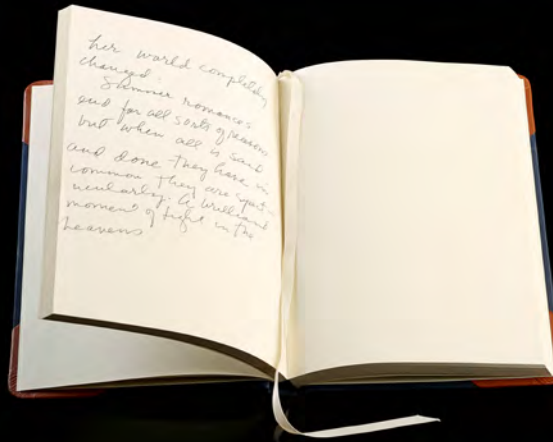 her world completely
changed.
Summer romances
end for all sorts of reasons
but when all is said
and done they have in
common they are
A brilliant
moment of light in the
heavens